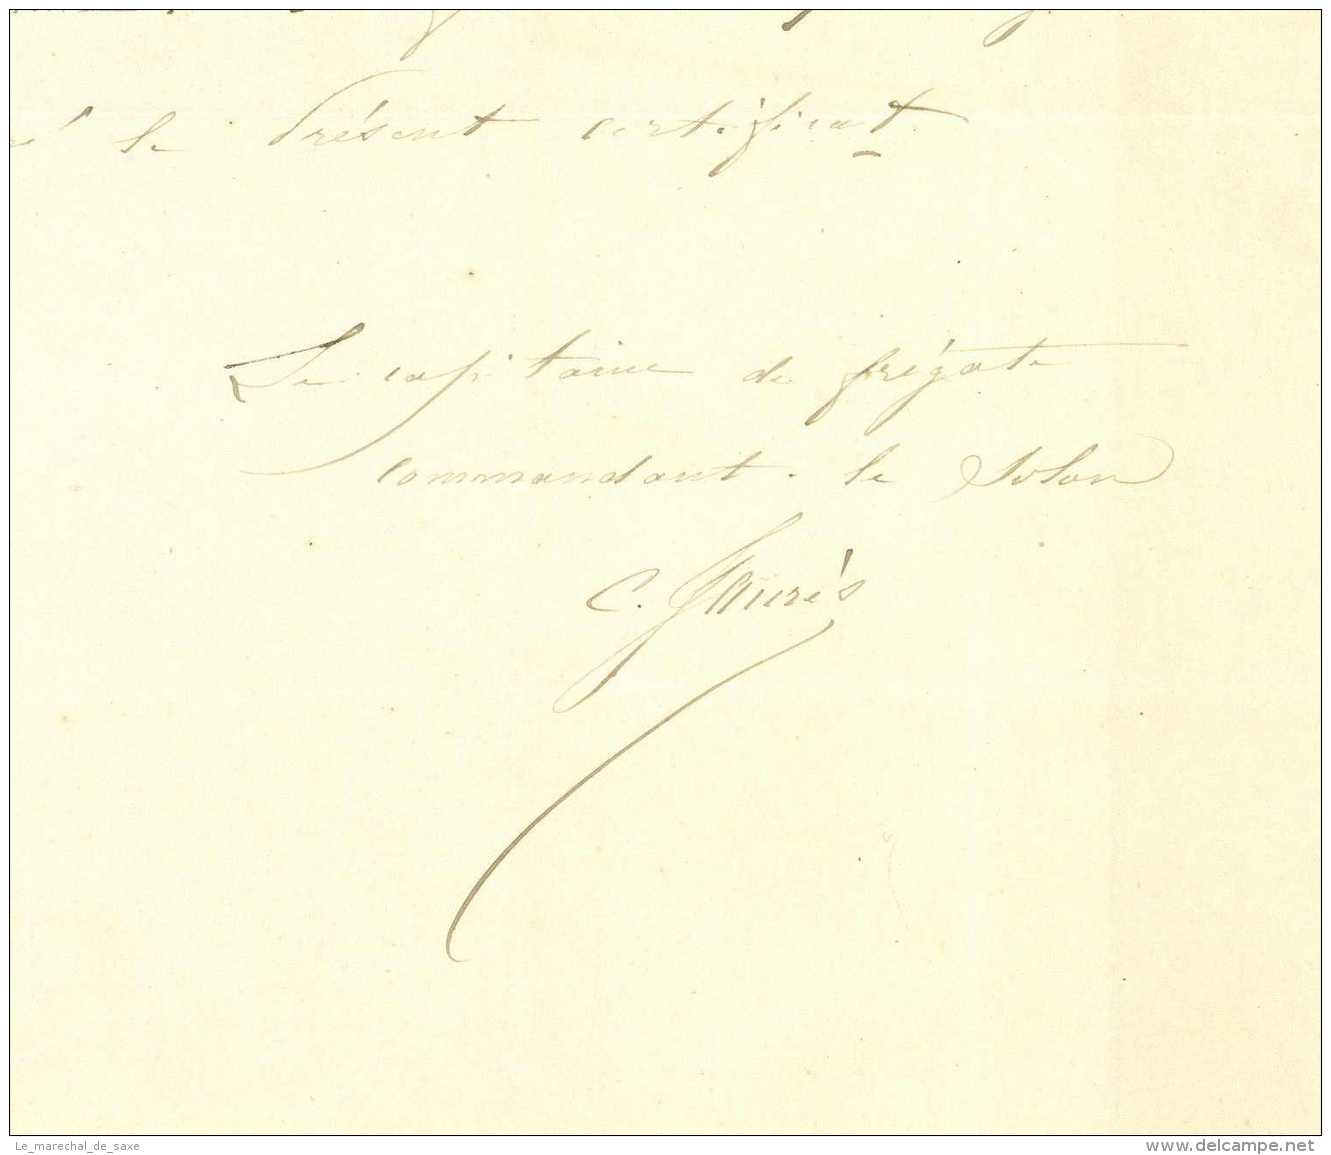 le Présent certificat
Le capitaine de frégate
commandant le Solon
C. Jaurés
Le_marechal_de_saxe
www.delcampe.net